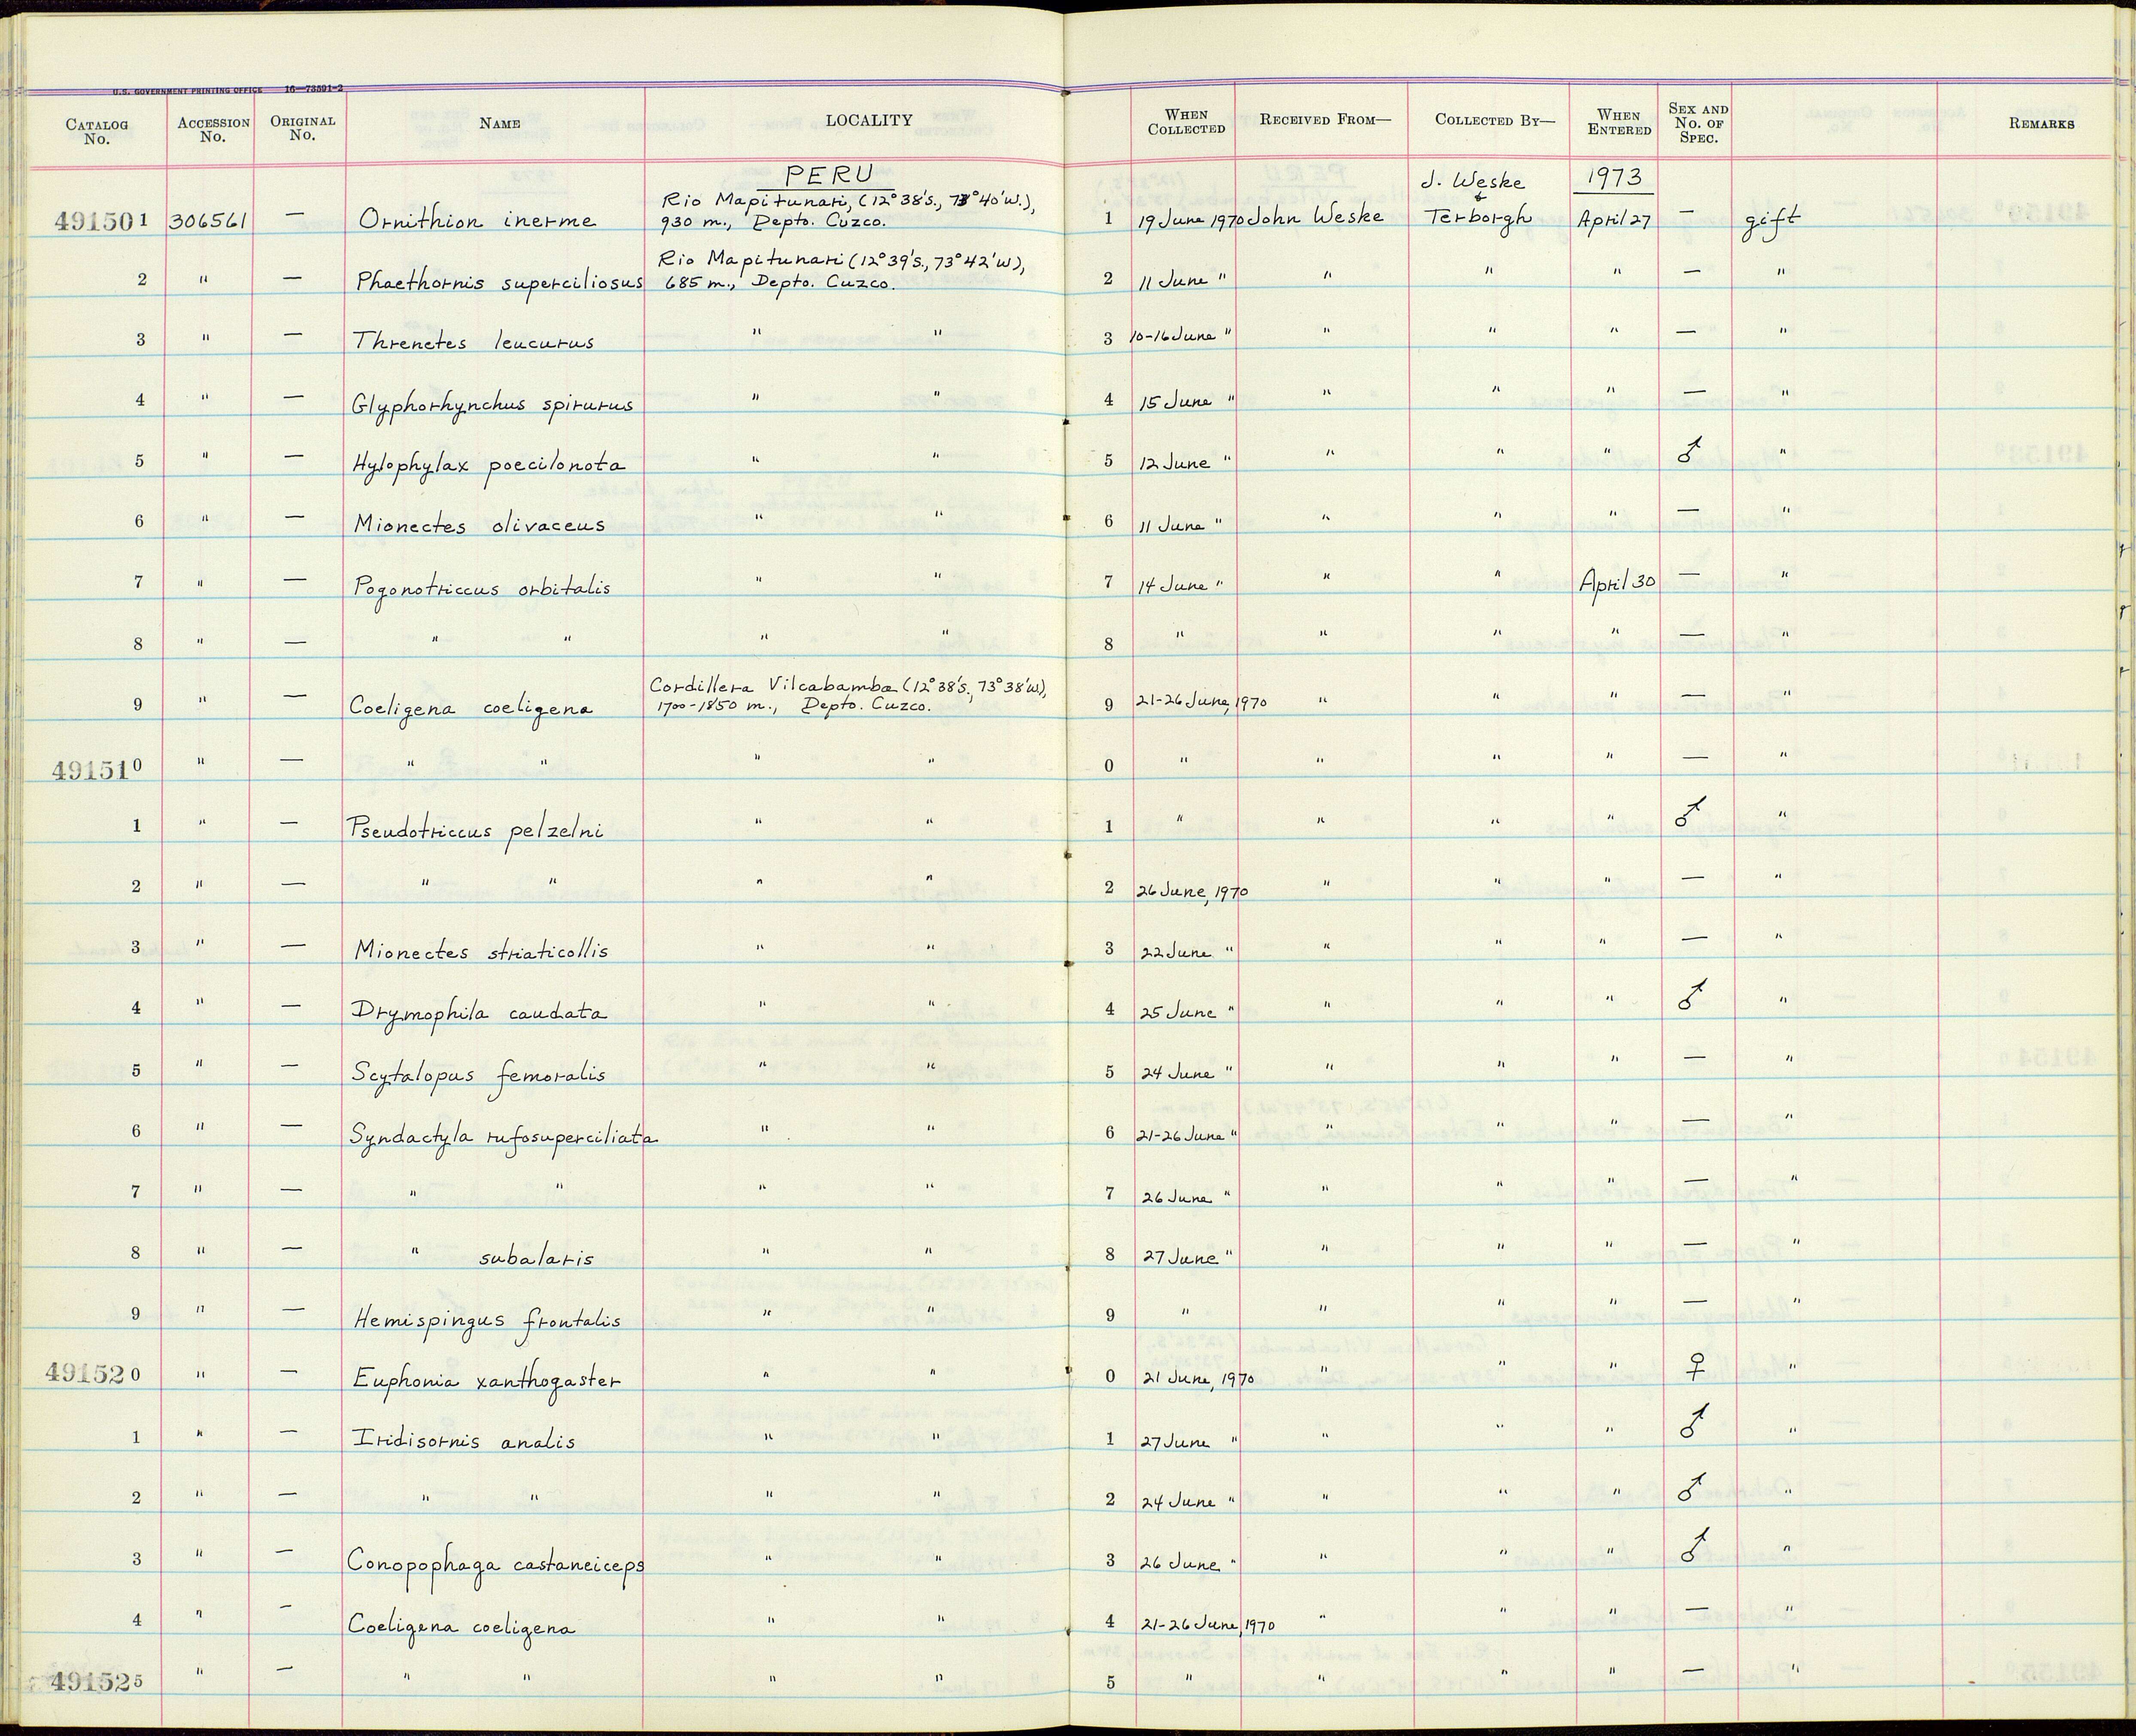 U.S. GOVERNMENT PRINTING OFFICE 16—73591-2
CATALOG No. ACCESSION No. ORIGINAL No. NAME LOCALITY WHEN COLLECTED RECEIVED FROM— COLLECTED BY— WHEN ENTERED SEX AND No. OF SPEC. REMARKS
PERU J. Weske 1973
491501 306561 — Ornithion inerme Rio Mapitunari, (12°38's., 73°40'w.), 930 m., Depto. Cuzco. 1 19 June 1970 John Weske & Terborgh April 27 — gift
2 " — Phaethornis superciliosus Rio Mapitunari (12°39's., 73°42'w), 685 m., Depto. Cuzco. 2 11 June " " " " — "
3 " — Threnetes leucurus " " 3 10-16 June " " " " — "
4 " — Glyphorhynchus spirurus " " 4 15 June " " " " — "
5 " — Hylophylax poecilonota " " 5 12 June " " " " ♂ "
6 " — Mionectes olivaceus " " 6 11 June " " " " — "
7 " — Pogonotriccus orbitalis " " 7 14 June " " " April 30 — "
8 " — " " " " 8 " " " " — "
9 " — Coeligena coeligena Cordillera Vilcabamba (12°38's., 73°38'w), 1700-1850 m., Depto. Cuzco. 9 21-26 June, 1970 " " " — "
491510 " — " " " " 0 " " " " — "
1 " — Pseudotriccus pelzelni " " 1 " " " " ♂ "
2 " — " " " " 2 26 June, 1970 " " " — "
3 " — Mionectes striaticollis " " 3 22 June " " " " — "
4 " — Drymophila caudata " " 4 25 June " " " " ♂ "
5 " — Scytalopus femoralis " " 5 24 June " " " " — "
6 " — Syndactyla rufosuperciliata " " 6 21-26 June " " " " — "
7 " — " " " " 7 26 June " " " " — "
8 " — " subalaris " " 8 27 June " " " " — "
9 " — Hemispingus frontalis " " 9 " " " " — "
491520 " — Euphonia xanthogaster " " 0 21 June, 1970 " " " ♀ "
1 " — Iridisornis analis " " 1 27 June " " " " ♂ "
2 " — " " " " 2 24 June " " " " ♂ "
3 " — Conopophaga castaneiceps " " 3 26 June " " " " ♂ "
4 " — Coeligena coeligena " " 4 21-26 June, 1970 " " " — "
491525 " — " " " " 5 " " " " — "